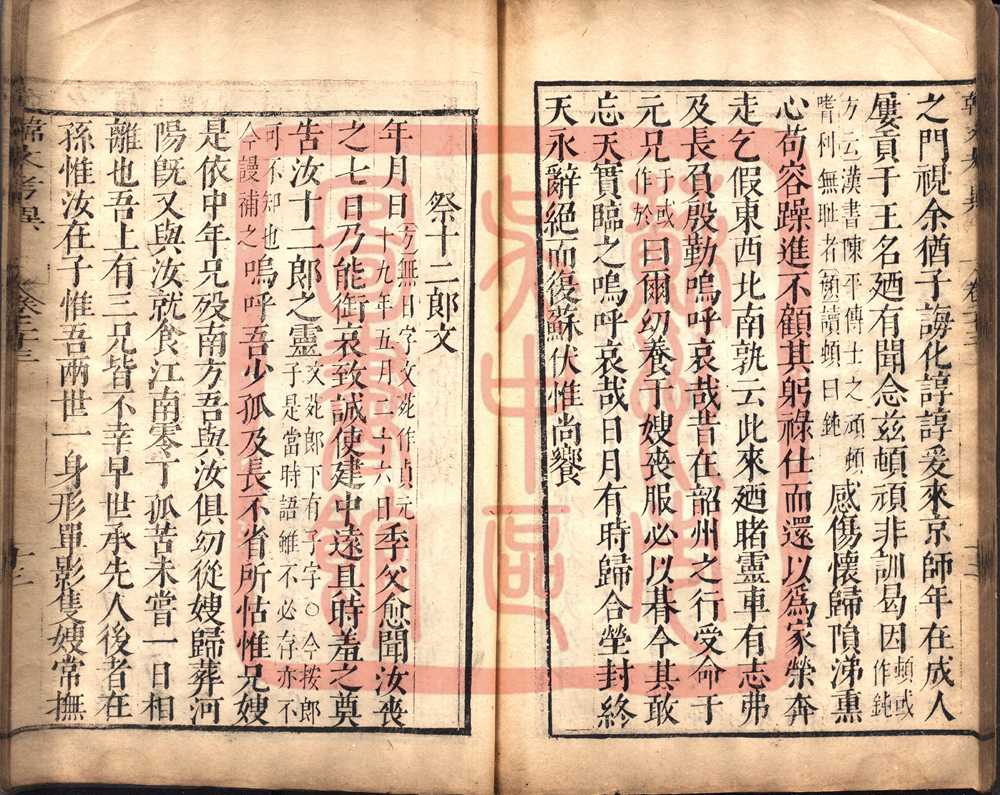 之門視余猶子誨化諄諄爰來京師年在成人
屢貢于王名廼有聞念兹頓頑非訓曷因頓或作鈍
方云漢書陳平傳士之頑頓嗜利無耻者顔讀頓曰鈍感傷懷歸隕涕熏
心苟容躁進不顧其躬祿仕而還以爲家榮奔
走乞假東西北南孰云此來廼睹靈車有志弗
及長負殷勤嗚呼哀哉昔在韶州之行受命于
元兄于或作於曰爾幼養于嫂喪服必以朞今其敢
忘天實臨之嗚呼哀哉日月有時歸合塋封終
天永辭絕而復蘇伏惟尚饗
祭十二郎文
年月日方無日字文苑作貞元十九年五月二十六日季父愈聞汝喪
之七日乃能銜哀致誠使建中遠具時羞之奠
告汝十二郎之靈文苑郎下有子字○今按郎子是當時語雖不必存亦不
可不知也今謾補之嗚呼吾少孤及長不省所怙惟兄嫂
是依中年兄歿南方吾與汝俱幼從嫂歸葬河
陽旣又與汝就食江南零丁孤苦未嘗一日相
離也吾上有三兄皆不幸早世承先人後者在
孫惟汝在子惟吾兩世一身形單影隻嫂常撫